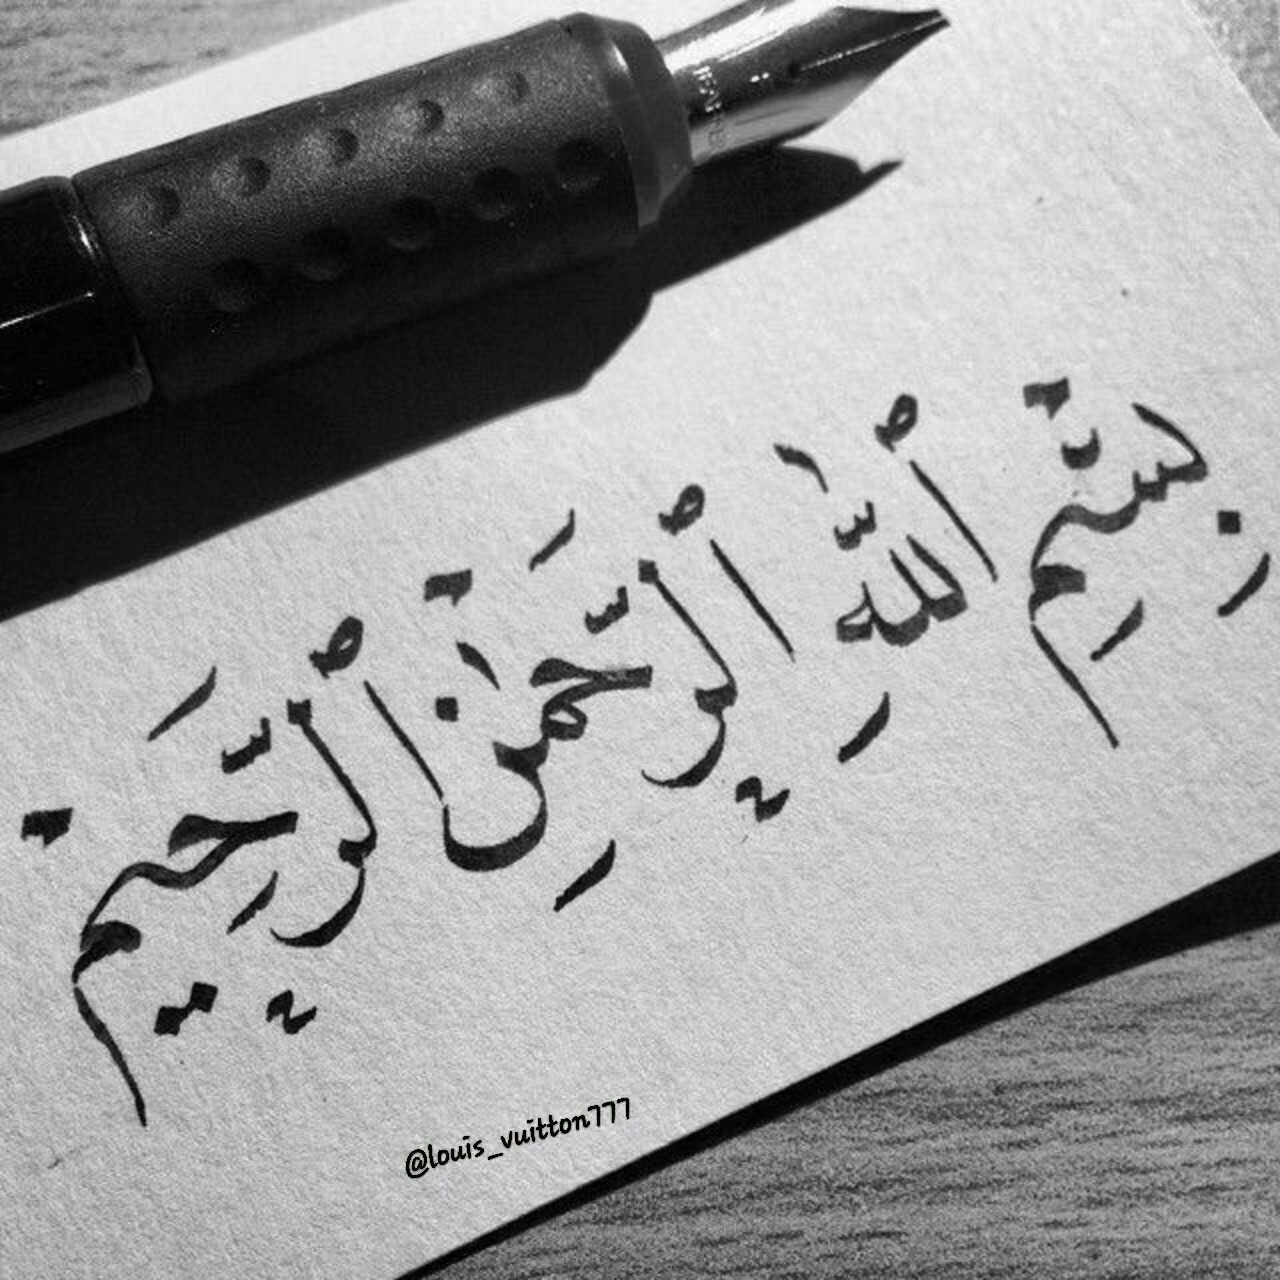 بِسْمِ ٱللَّٰهِ ٱلرَّحْمَٰنِ ٱلرَّحِيمِ
@louis_vuitton777